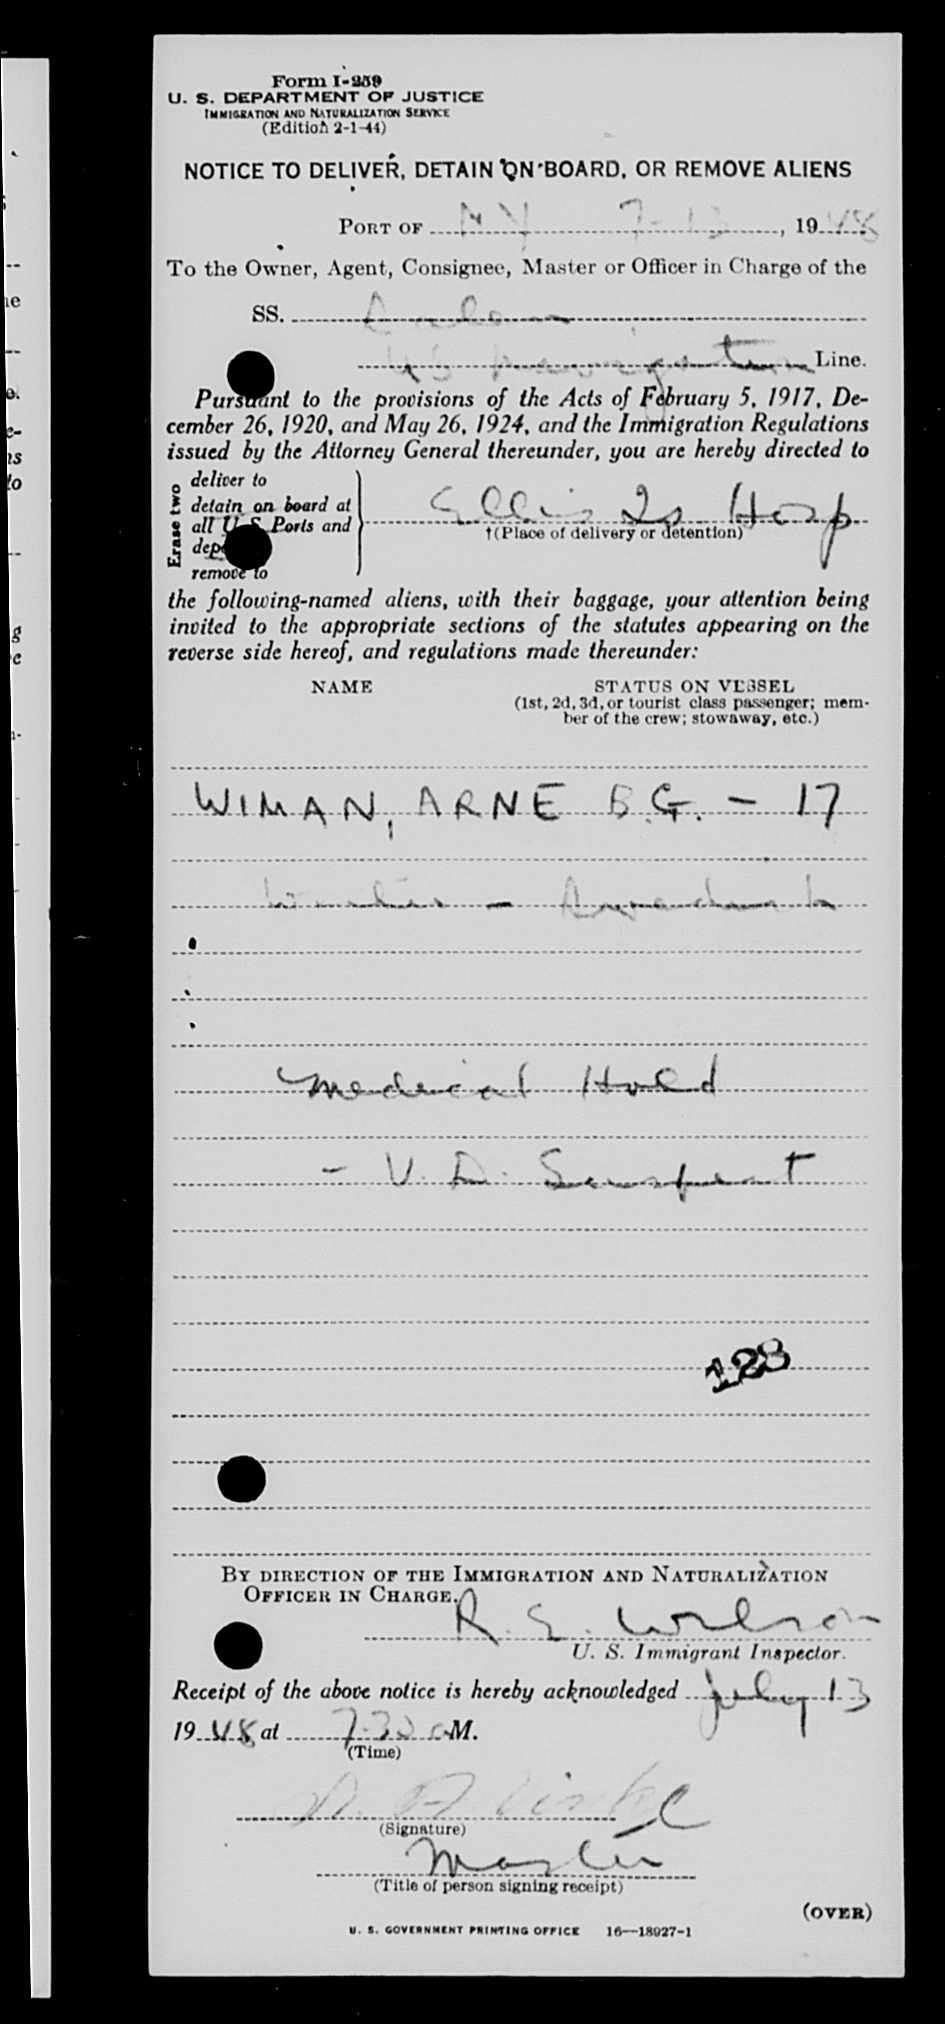 Form I-259
U. S. DEPARTMENT OF JUSTICE
IMMIGRATION AND NATURALIZATION SERVICE
(Edition 2-1-44)
NOTICE TO DELIVER, DETAIN ON BOARD, OR REMOVE ALIENS
PORT OF NY 7-13, 1948
To the Owner, Agent, Consignee, Master or Officer in Charge of the
SS.
US Navigation Line.
Pursuant to the provisions of the Acts of February 5, 1917, De-
cember 26, 1920, and May 26, 1924, and the Immigration Regulations
issued by the Attorney General thereunder, you are hereby directed to
Erase two
deliver to
detain on board at
all U. S. Ports and
remove to
Ellis Is Hosp
†(Place of delivery or detention)
the following-named aliens, with their baggage, your attention being
invited to the appropriate sections of the statutes appearing on the
reverse side hereof, and regulations made thereunder:
NAME STATUS ON VESSEL
(1st, 2d, 3d, or tourist class passenger; mem-
ber of the crew; stowaway, etc.)
WIMAN, ARNE B.G. - 17
Medical Hold
- V. D. Suspect
128
BY DIRECTION OF THE IMMIGRATION AND NATURALIZATION
OFFICER IN CHARGE.
R. E. Wilson
U. S. Immigrant Inspector.
Receipt of the above notice is hereby acknowledged July 13
1948 at 7:30 a M.
(Time)
(Signature)
Master
(Title of person signing receipt)
(OVER)
U. S. GOVERNMENT PRINTING OFFICE 16—18027-1